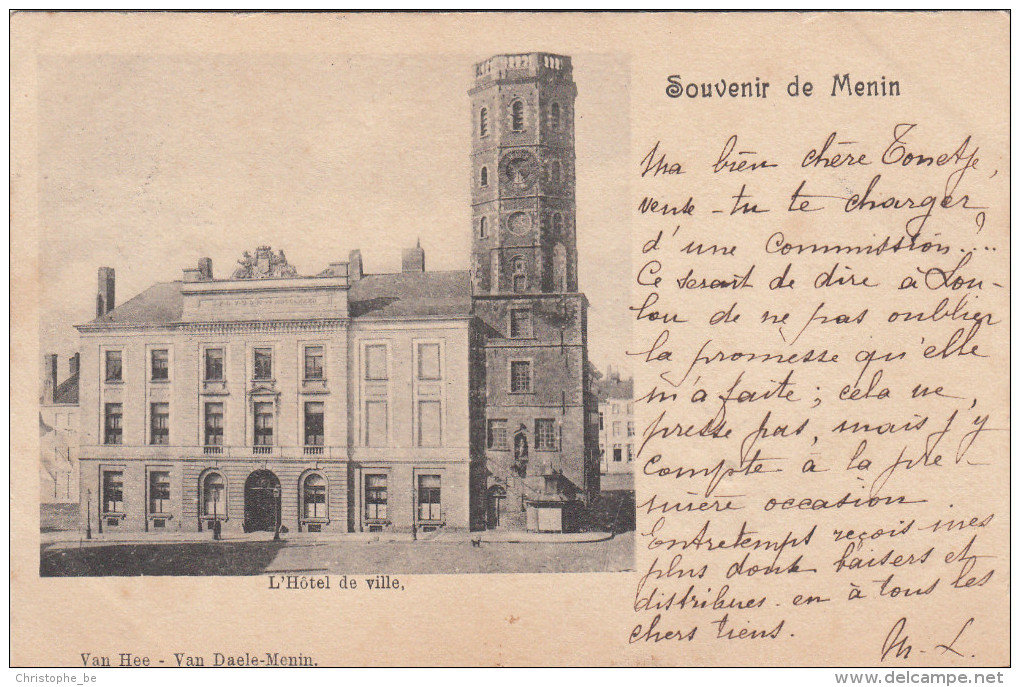 Souvenir de Menin
Ma bien chère Tonetje,
veux-tu te charger
d'une commission?...
Ce serait de dire à Lou-
lou de ne pas oublier
la promesse qu'elle
m'a faite; cela ne
presse pas, mais j'y
compte à la pre-
mière occasion
Entretemps reçois mes
plus doux baisers et
distribues-en à tous les
chers tiens.
M-L.
L'Hôtel de ville,
Van Hee - Van Daele-Menin.
Christophe_be
www.delcampe.net